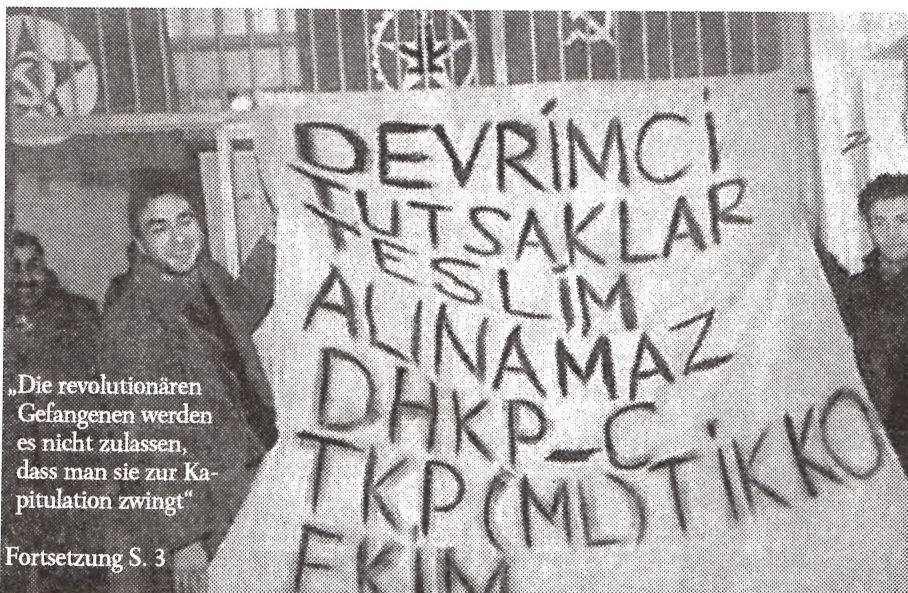 DEVRİMCİ
TUTSAKLAR
TESLİM
ALINAMAZ
DHKP-C
TKP(ML)TİKKO
EKİM
„Die revolutionären
Gefangenen werden
es nicht zulassen,
dass man sie zur Ka-
pitulation zwingt“
Fortsetzung S. 3